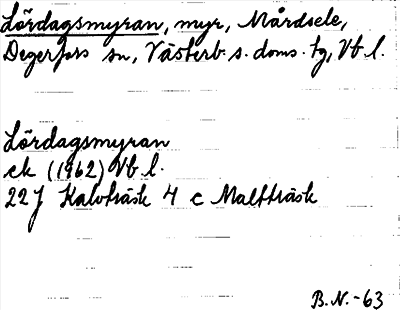 Lördagsmyran, myr, Mårdsele,
Degerfors sn, Västerb. s. doms. tg, Vb l.
Lördagsmyran
ek (1962) Vb l.
22 J Kalvträsk 4 c Maltträsk
B.N.-63